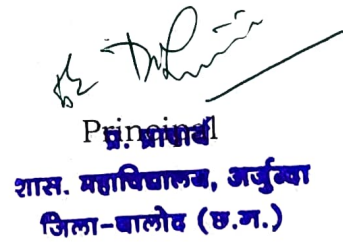 Principal
प्र. प्राचार्य
शास. महाविद्यालय, अर्जुन्दा
जिला-बालोद (छ.ग.)